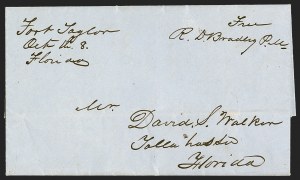 Fort Taylor
Oct. 8.
Florida
Free
R. D. Bradley P.M.
Mr.
David. S. Walker
Tallahassee
Florida